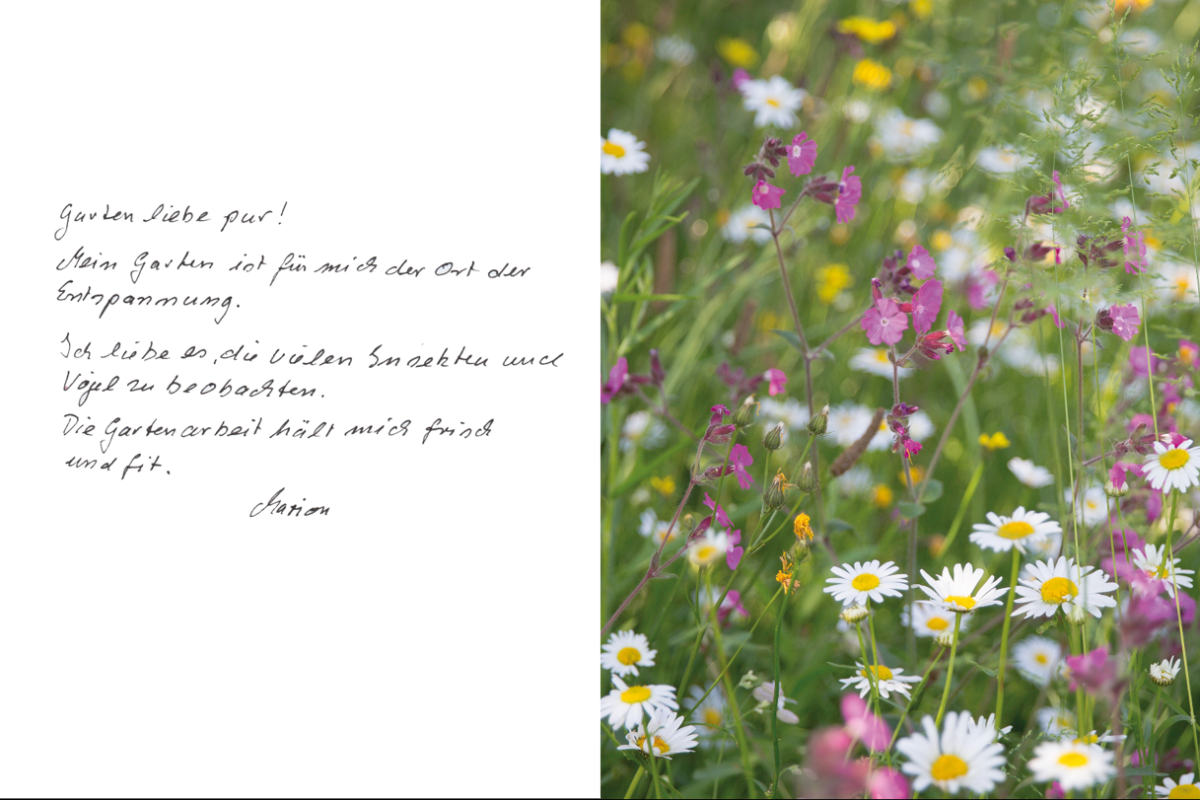 Garten liebe pur!
Mein Garten ist für mich der Ort der
Entspannung.
Ich liebe es, die vielen Insekten und
Vögel zu beobachten.
Die Gartenarbeit hält mich frisch
und fit.
Marion